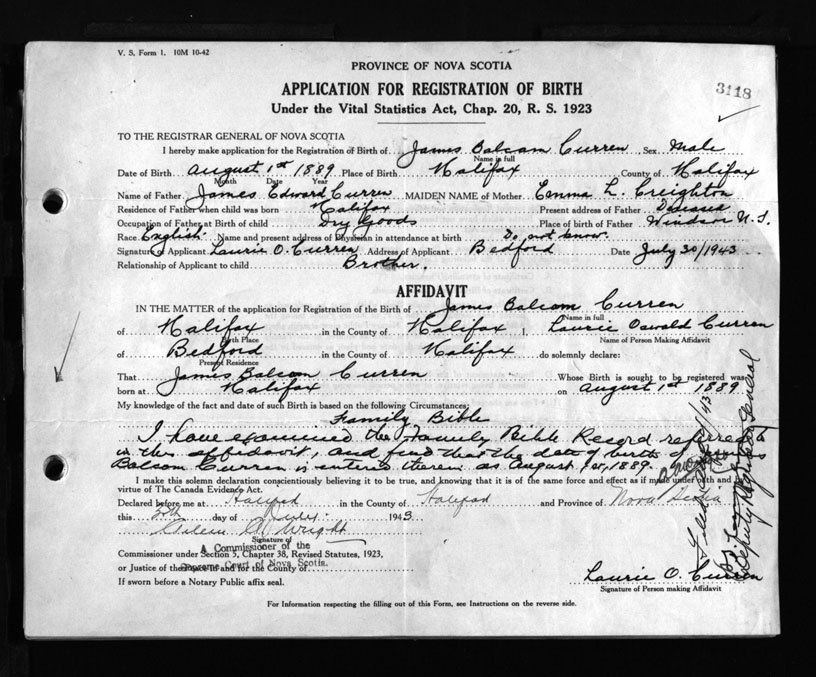 V. S. Form 1. 10M 10-42
PROVINCE OF NOVA SCOTIA
APPLICATION FOR REGISTRATION OF BIRTH
3118
Under the Vital Statistics Act, Chap. 20, R. S. 1923
TO THE REGISTRAR GENERAL OF NOVA SCOTIA
I hereby make application for the Registration of Birth of James Balcam Curren, Sex Male
Name in full
Date of Birth August 1st 1889 Place of Birth Halifax County of Halifax
Month Date Year
Name of Father James Edward Curren MAIDEN NAME of Mother Emma L. Creighton
Residence of Father when child was born Halifax Present address of Father
Occupation of Father at Birth of child Dry Goods Place of birth of Father Windsor N.S.
Race English Name and present address of Physician in attendance at birth Do not know.
Signature of Applicant Laurie O. Curren Address of Applicant Bedford Date July 30/1943
Relationship of Applicant to child Brother.
AFFIDAVIT
IN THE MATTER of the application for Registration of the Birth of James Balcam Curren
Name in full
of Halifax in the County of Halifax I, Laurie Oswald Curren
Birth Place Name of Person Making Affidavit
of Bedford in the County of Halifax do solemnly declare:
Present Residence
That James Balcam Curren Whose Birth is sought to be registered was
born at Halifax on August 1st 1889
My knowledge of the fact and date of such Birth is based on the following Circumstances:
Family Bible
I have examined the Family Bible Record referred to
in this affidavit, and find that the date of birth of James
Balcom Curren is entered therein as August 1st, 1889.
I make this solemn declaration conscientiously believing it to be true, and knowing that it is of the same force and effect as if made under oath and by
virtue of The Canada Evidence Act.
Declared before me at Halifax in the County of Halifax and Province of Nova Scotia
this 30th day of July 1943
Wright
Signature of
A Commissioner of the
Commissioner under Section 5, Chapter 38, Revised Statutes, 1923,
Supreme Court of Nova Scotia.
or Justice of the Peace in and for the County of
If sworn before a Notary Public affix seal.
Laurie O. Curren
Signature of Person making Affidavit
For Information respecting the filling out of this Form, see Instructions on the reverse side.
Deputy Registrar General